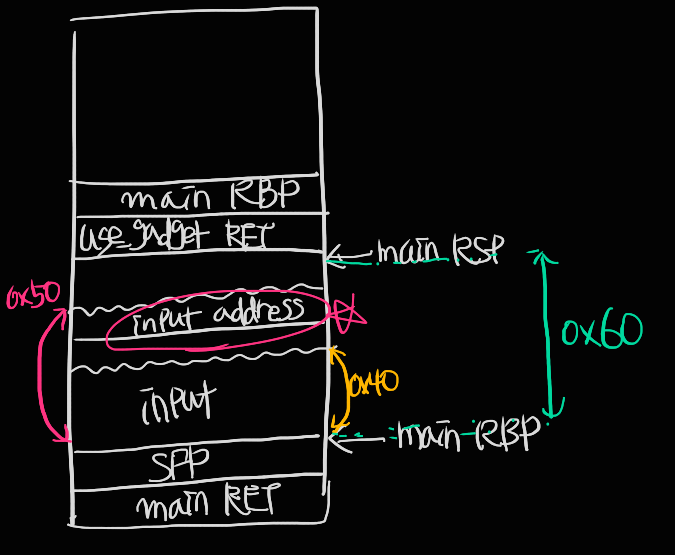 main RBP
use_gadget RET
main RSP
0x50
input address
0x60
0x40
input
main RBP
SFP
main RET